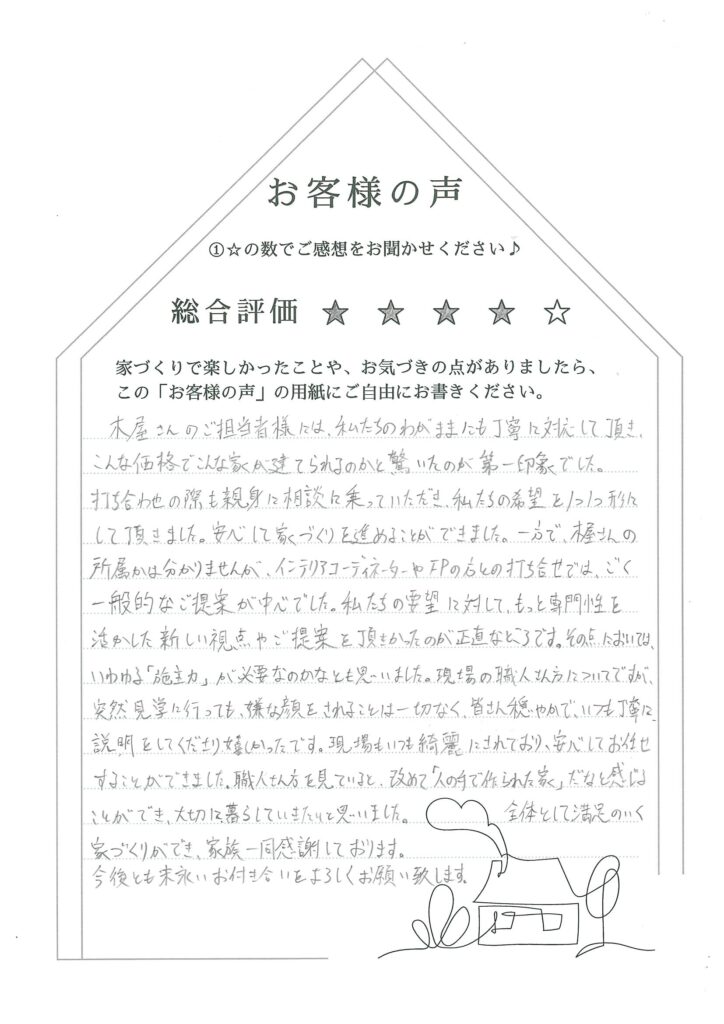 お客様の声
①☆の数でご感想をお聞かせください♪
総合評価 ★ ★ ★ ★ ☆
家づくりで楽しかったことや、お気づきの点がありましたら、
この「お客様の声」の用紙にご自由にお書きください。
木屋さんのご担当者様には、私たちのわがままにも丁寧に対応して頂き、
こんな価格でこんな家が建てられるのかと驚いたのが第一印象でした。
打ち合わせの際も親身に相談に乗っていただき、私たちの希望を1つ1つ形に
して頂きました。安心して家づくりを進めることができました。一方で、木屋さんの
所属かは分かりませんが、インテリアコーディネーターやFPの方との打ち合せでは、ごく
一般的なご提案が中心でした。私たちの要望に対して、もっと専門性を
活かした新しい視点やご提案を頂きたかったのが正直なところです。その点においては、
いわゆる「施主力」が必要なのかなとも思いました。現場の職人さん方についてですが、
突然見学に行っても、嫌な顔をされることは一切なく、皆さん穏やかで、いつも丁寧に
説明をしてくださり嬉しかったです。現場もいつも綺麗にされており、安心してお任せ
することができました。職人さん方を見ていると、改めて「人の手で作られた家」だなと感じる
ことができ、大切に暮らしていきたいと思いました。 全体として満足のいく
家づくりができ、家族一同感謝しております。
今後とも末永いお付き合いをよろしくお願い致します。